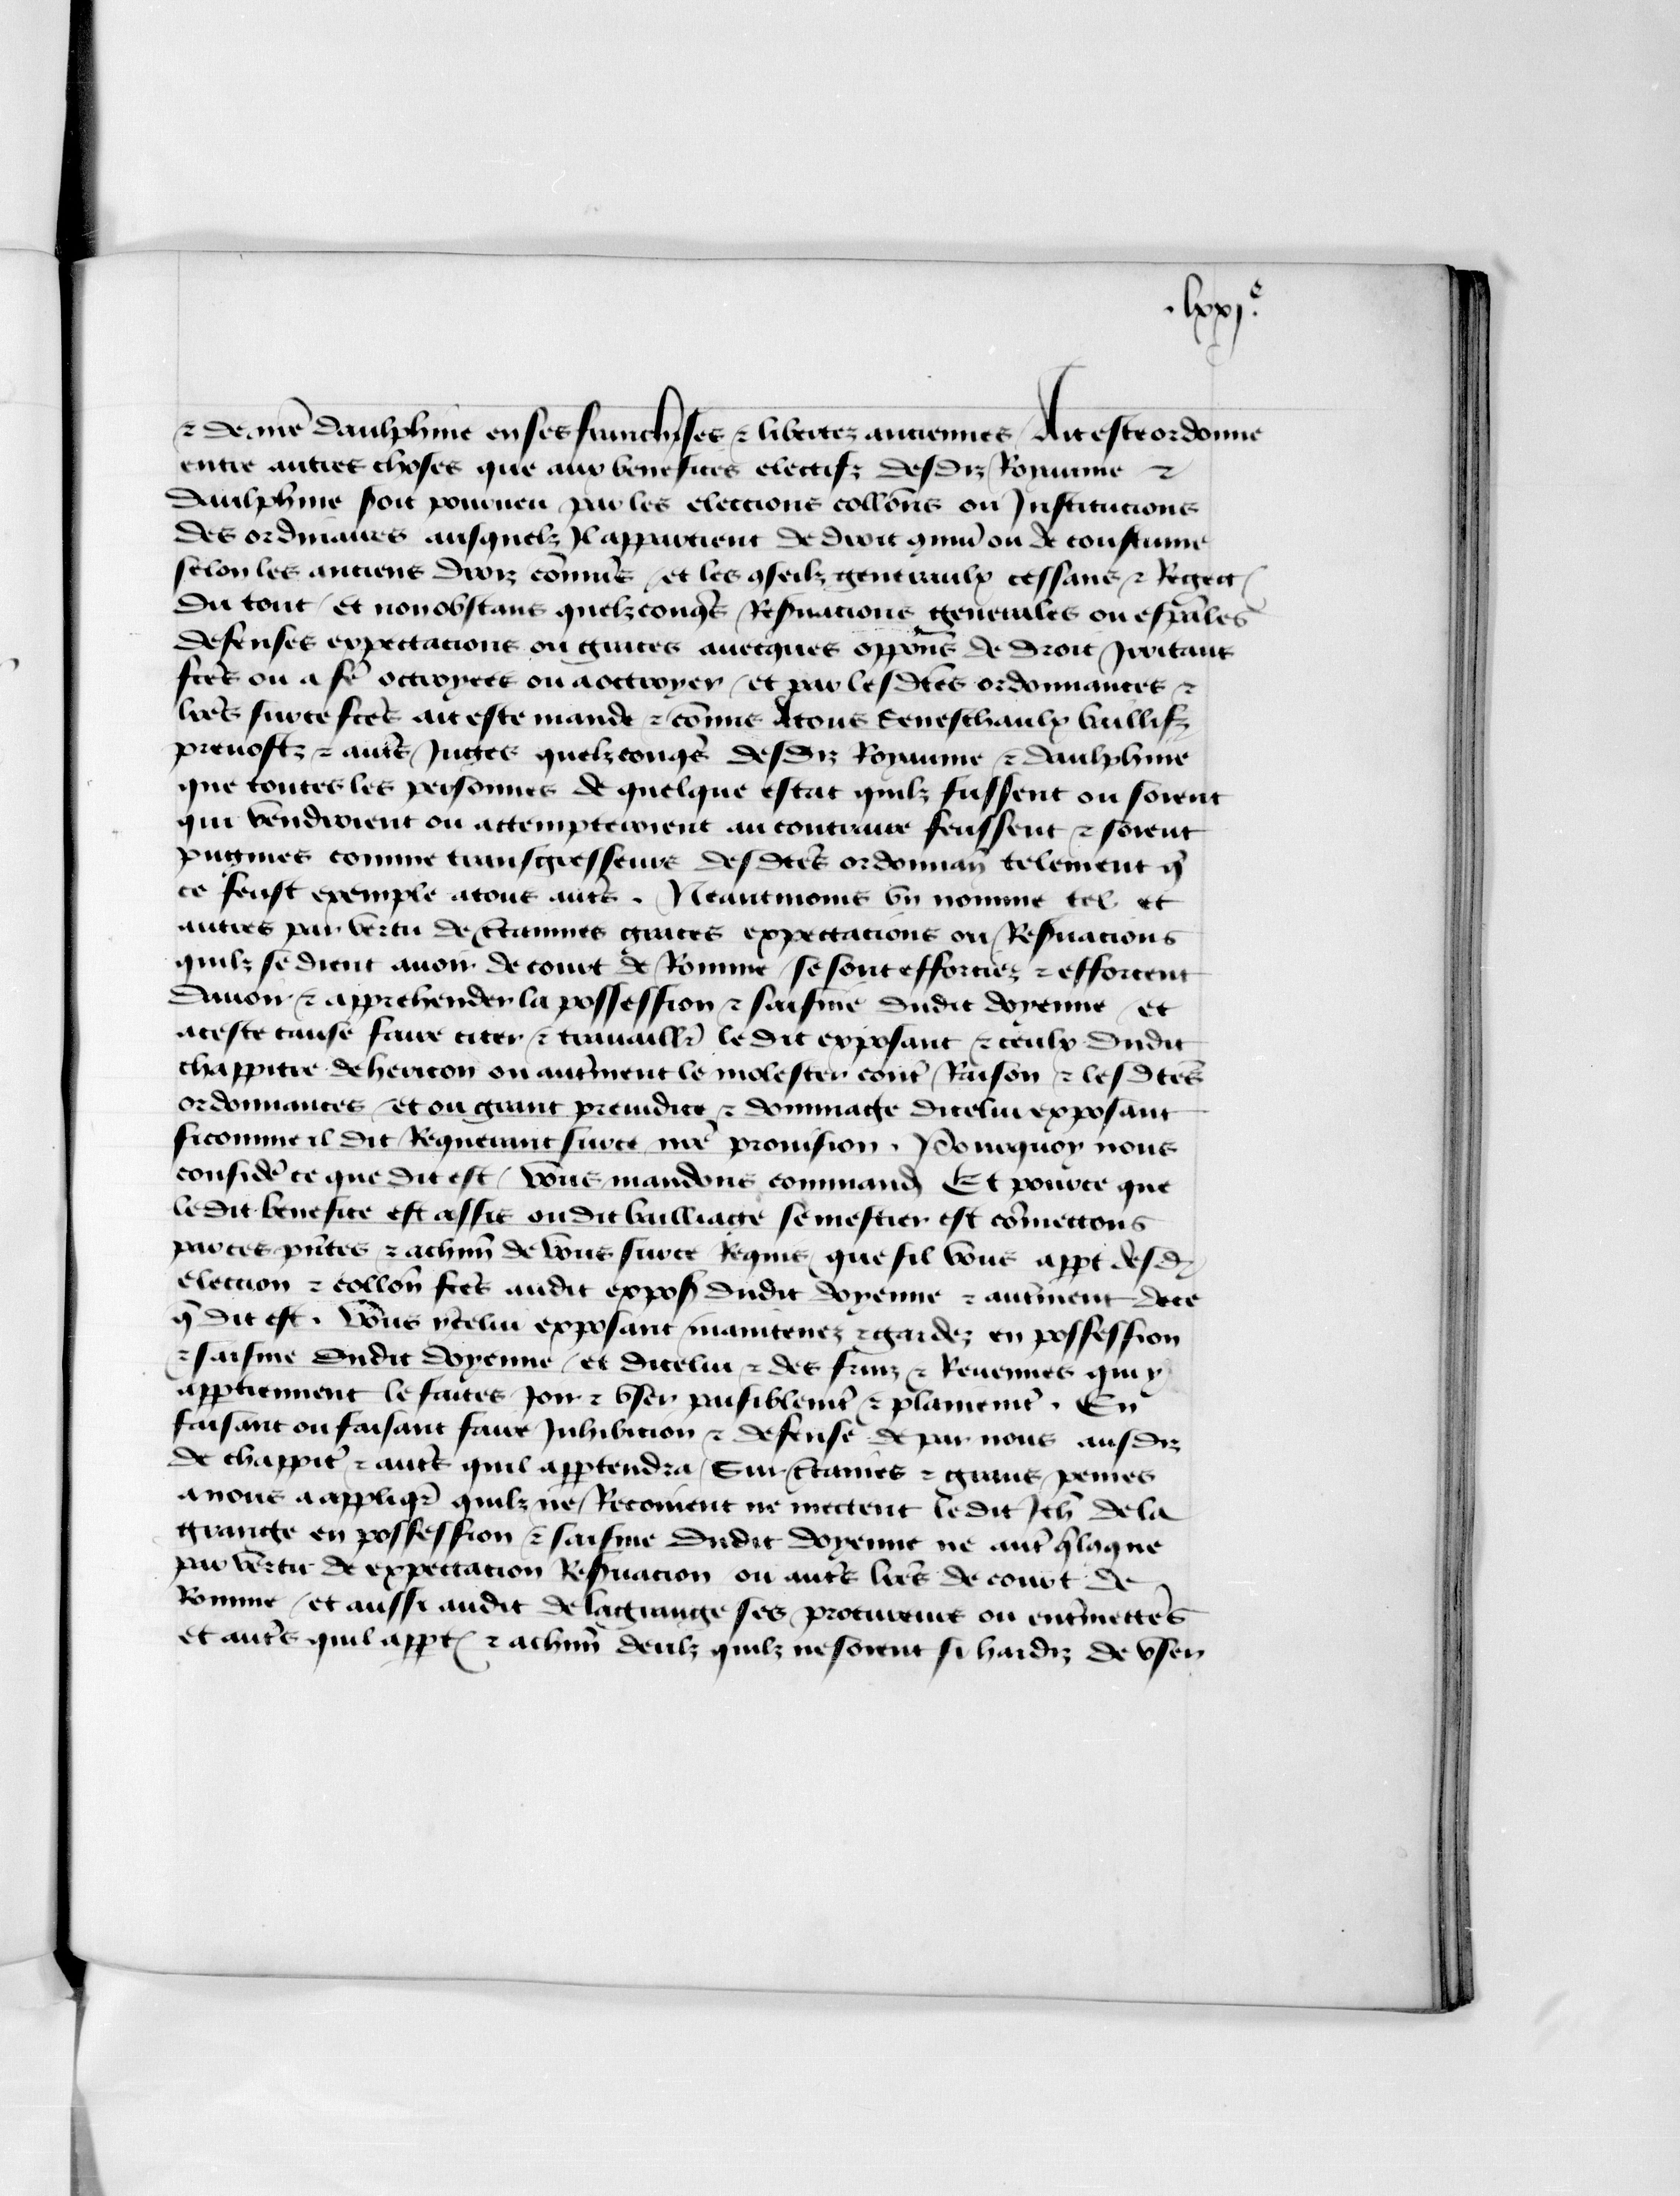 .lxxj.e
⁊ de nr̄e daulphine en ses franchises ⁊ libertez anciennes / Ait este ordonne
entre autres choses que aux benefices electifz desdiz Royaume ⁊
daulphine soit pourueu par les elections collons̄ ou Institucions
des ordinaires ausquelz Il appartient de droit ꝯmū ou de coustume
selon les anciens droiz com̄uns / et les ꝯseilz generaulx cessans ⁊ Regect
du tout / et nonobstans quelzconqs̄ Resuacions generales ou esp̄ales
defenses expectacions ou graces auecques opp̄ons de droit Irritant
fctēs ou a fē octroyees ou a octroyer / et par lesdtēs ordonnances ⁊
lrēs surce fctēs ait este mande ⁊ com̄is Atous Seneschaulx baillifz
preuostz ⁊ autēs Juges quelzconqs̄ desdiz Royaume ⁊ daulphine
que toutes les personnes de quelque estat quilz fussent ou soient
qui vendroient ou attempteroient au contraire feussent ⁊ soient
pugnies comme transgresseurs desdtēs ordonnan̄ telement q̄
ce feust exemple atous autēs . Neantmoins vn nomme tel et
autres par vertu de c̄taines graces expectacions ou Resuacions
quilz se dient auoir de court de Romme se sont efforciez ⁊ efforcent
dauoir ⁊ apprehender la possession ⁊ saisine dudit doyenne / et
aceste cause faire citer ⁊ trauaillr̄ le dit exposant ⁊ ceulx dudit
chappitre de hericon ou autm̄ent le molester cont̄ Raison ⁊ lesdtēs
ordonnances / et ou grant preiudice ⁊ dommage dicelui exposant
sicomme il dit Requerant surce nr̄e prouision . Pourquoy nous
considē ce que dit est / vous mandons command Et pource que
ledit benefice est assis oudit bailliage se mestier est com̄ettons
par ces pn̄tes ⁊ achūn de vous surce Requis que sil vous appt desd
election ⁊ collon̄ fctēs audit expos dudit doyenne ⁊ autm̄ent dece
q̄ dit est . Vous ycelui exposant maintenez ⁊ gardez en possession
⁊ saisine dudit doyenne / et dicelui ⁊ des fruiz ⁊ Reuenues qui y
apptiennent le faites Joir ⁊ vser paisiblemt̄ ⁊ plainemt̄ . En
faisant ou faisant faire Inhibicion ⁊ defense de par nous ausdiz
de chappit̄ ⁊ autēs quil apptendra / Sur c̄taines ⁊ grans peines
anous a appliqr̄ quilz ne Recoiuent ne mectent le dit Jeh̄ dela
grange en possession ⁊ saisine dudit doyenne ne aut̄ q̄lzque
par vertu de expectacion Resuacion ou autēs lrēs de court de
Romme / et aussi audit delagrange ses procureurs ou entm̄ettēs
et autēs quil appt ⁊ achūn deulz quilz ne soient si hardiz de vser